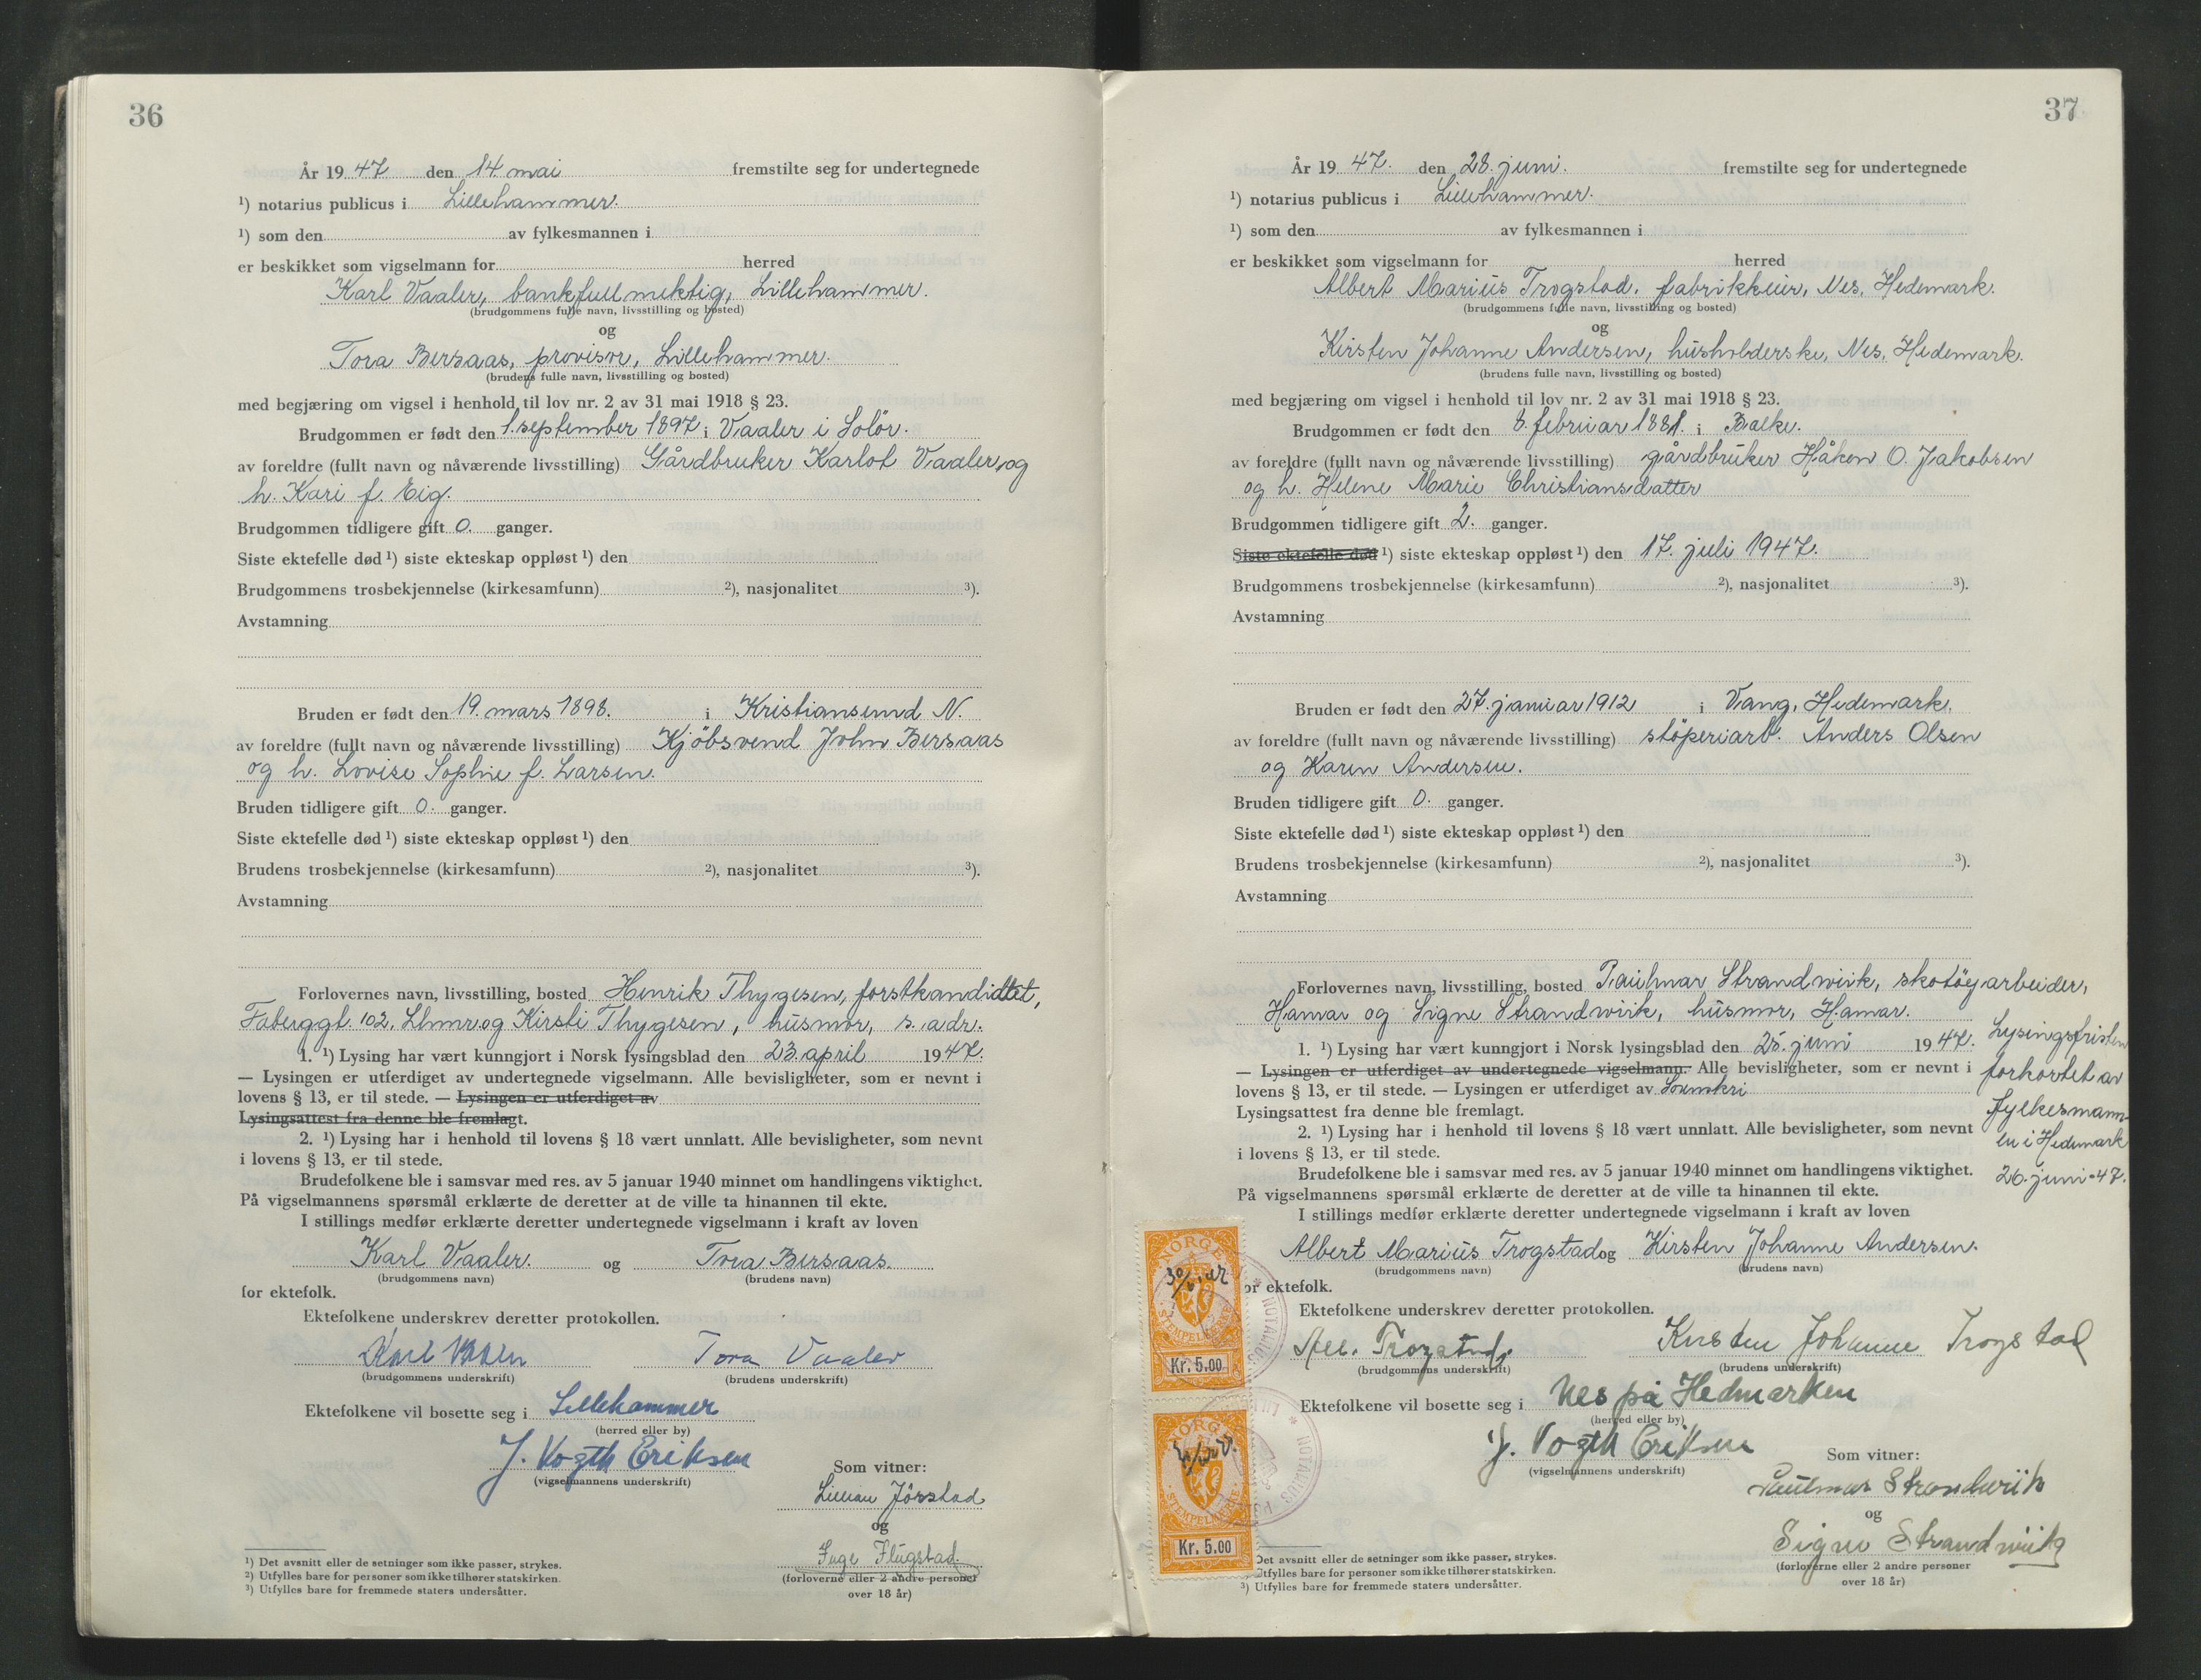 36
År 19 47 den 14. mai fremstilte seg for undertegnede
¹) notarius publicus i Lillehammer.
¹) som den av fylkesmannen i
er beskikket som vigselmann for herred
Karl Vaaler, bankfullmektig, Lillehammer.
(brudgommens fulle navn, livsstilling og bosted)
og
Tora Bersaas, provisor, Lillehammer.
(brudens fulle navn, livsstilling og bosted)
med begjæring om vigsel i henhold til lov nr. 2 av 31 mai 1918 § 23.
Brudgommen er født den 1. september 1897 i Vaaler i Solör.
av foreldre (fullt navn og nåværende livsstilling) Gårdbruker Karlot Vaaler og
h. Kari f. Eig.
Brudgommen tidligere gift 0. ganger.
Siste ektefelle død ¹) siste ekteskap oppløst ¹) den
Brudgommens trosbekjennelse (kirkesamfunn) ²), nasjonalitet ³).
Avstamning
Bruden er født den 19. mars 1898. i Kristiansund N.
av foreldre (fullt navn og nåværende livsstilling) Kjöbsvend John Bersaas
og h. Lovise Sophie f. Larsen.
Bruden tidligere gift 0. ganger.
Siste ektefelle død ¹) siste ekteskap oppløst ¹) den
Brudens trosbekjennelse (kirkesamfunn) ²), nasjonalitet ³).
Avstamning
Forlovernes navn, livsstilling, bosted Henrik Thygesen, forstkandidat,
Faberggt. 102, Lhmr. og Kirsti Thygesen, husmor, s. adr.
1. ¹) Lysing har vært kunngjort i Norsk lysingsblad den 23. april 1947.
— Lysingen er utferdiget av undertegnede vigselmann. Alle bevisligheter, som er nevnt i
lovens § 13, er til stede. — Lysingen er utferdiget av
Lysingsattest fra denne ble fremlagt.
2. ¹) Lysing har i henhold til lovens § 18 vært unnlatt. Alle bevisligheter, som nevnt
i lovens § 13, er til stede.
Brudefolkene ble i samsvar med res. av 5 januar 1940 minnet om handlingens viktighet.
På vigselmannens spørsmål erklærte de deretter at de ville ta hinannen til ekte.
I stillings medfør erklærte deretter undertegnede vigselmann i kraft av loven
Karl Vaaler. og Tora Bersaas.
(brudgommens navn) (brudens navn)
for ektefolk.
Ektefolkene underskrev deretter protokollen.
Karl Vaaler Tora Vaaler
(brudgommens underskrift) (brudens underskrift)
Ektefolkene vil bosette seg i Lillehammer
(herred eller by)
J. Vogth Eriksen
(vigselmannens underskrift)
Som vitner:
Lillian Jörstad
og
Inge Flugstad.
(forloverne eller 2 andre personer
over 18 år)
¹) Det avsnitt eller de setninger som ikke passer, strykes.
²) Utfylles bare for personer som ikke tilhører statskirken.
³) Utfylles bare for fremmede staters undersåtter.
37
År 19 47. den 28. juni. fremstilte seg for undertegnede
¹) notarius publicus i Lillehammer.
¹) som den av fylkesmannen i
er beskikket som vigselmann for herred
Albert Marius Trogstad, fabrikkeier, Nes, Hedemark.
(brudgommens fulle navn, livsstilling og bosted)
og
Kirsten Johanne Andersen, husholderske, Nes, Hedemark.
(brudens fulle navn, livsstilling og bosted)
med begjæring om vigsel i henhold til lov nr. 2 av 31 mai 1918 § 23.
Brudgommen er født den 8. februar 1881. i Balke.
av foreldre (fullt navn og nåværende livsstilling) gårdbruker Håken O. Jakobsen
og h. Helene Marie Christiansdatter
Brudgommen tidligere gift 2. ganger.
Siste ektefelle død ¹) siste ekteskap oppløst ¹) den 17. juli 1947.
Brudgommens trosbekjennelse (kirkesamfunn) ²), nasjonalitet ³).
Avstamning
Bruden er født den 27. januar 1912 i Vang, Hedemark.
av foreldre (fullt navn og nåværende livsstilling) stöperiarb. Anders Olsen
og Karen Andersen.
Bruden tidligere gift 0. ganger.
Siste ektefelle død ¹) siste ekteskap oppløst ¹) den
Brudens trosbekjennelse (kirkesamfunn) ²), nasjonalitet ³).
Avstamning
Forlovernes navn, livsstilling, bosted Paulmar Strandwiik, skotöyarbeider,
Hamar og Signe Strandwiik, husmor, Hamar.
1. ¹) Lysing har vært kunngjort i Norsk lysingsblad den 25. juni 1947.
— Lysingen er utferdiget av undertegnede vigselmann. Alle bevisligheter, som er nevnt i
lovens § 13, er til stede. — Lysingen er utferdiget av
Lysingsattest fra denne ble fremlagt.
2. ¹) Lysing har i henhold til lovens § 18 vært unnlatt. Alle bevisligheter, som nevnt
i lovens § 13, er til stede.
Lysingsfristen
forkortet av
fylkesmann-
en i Hedemark
26. juni - 47.
Brudefolkene ble i samsvar med res. av 5 januar 1940 minnet om handlingens viktighet.
På vigselmannens spørsmål erklærte de deretter at de ville ta hinannen til ekte.
I stillings medfør erklærte deretter undertegnede vigselmann i kraft av loven
Albert Marius Trogstad og Kirsten Johanne Andersen.
(brudgommens navn) (brudens navn)
or ektefolk.
Ektefolkene underskrev deretter protokollen.
Alb. Trogstad Kirsten Johanne Trogstad
(brudgommens underskrift) (brudens underskrift)
Ektefolkene vil bosette seg i Nes på Hedmarken
(herred eller by)
J. Vogth Eriksen
(vigselmannens underskrift)
Som vitner:
Paulmar Strandwiik
og
Signe Strandwiik
(forloverne eller 2 andre personer
over 18 år)
Det avsnitt eller de setninger som ikke passer, strykes.
Utfylles bare for personer som ikke tilhører statskirken.
³) Utfylles bare for fremmede staters undersåtter.
NORGE
STEMPELMERKE
Kr. 5.00
NORGE
STEMPELMERKE
Kr. 5.00
NOTARIUS
NOTARIUS